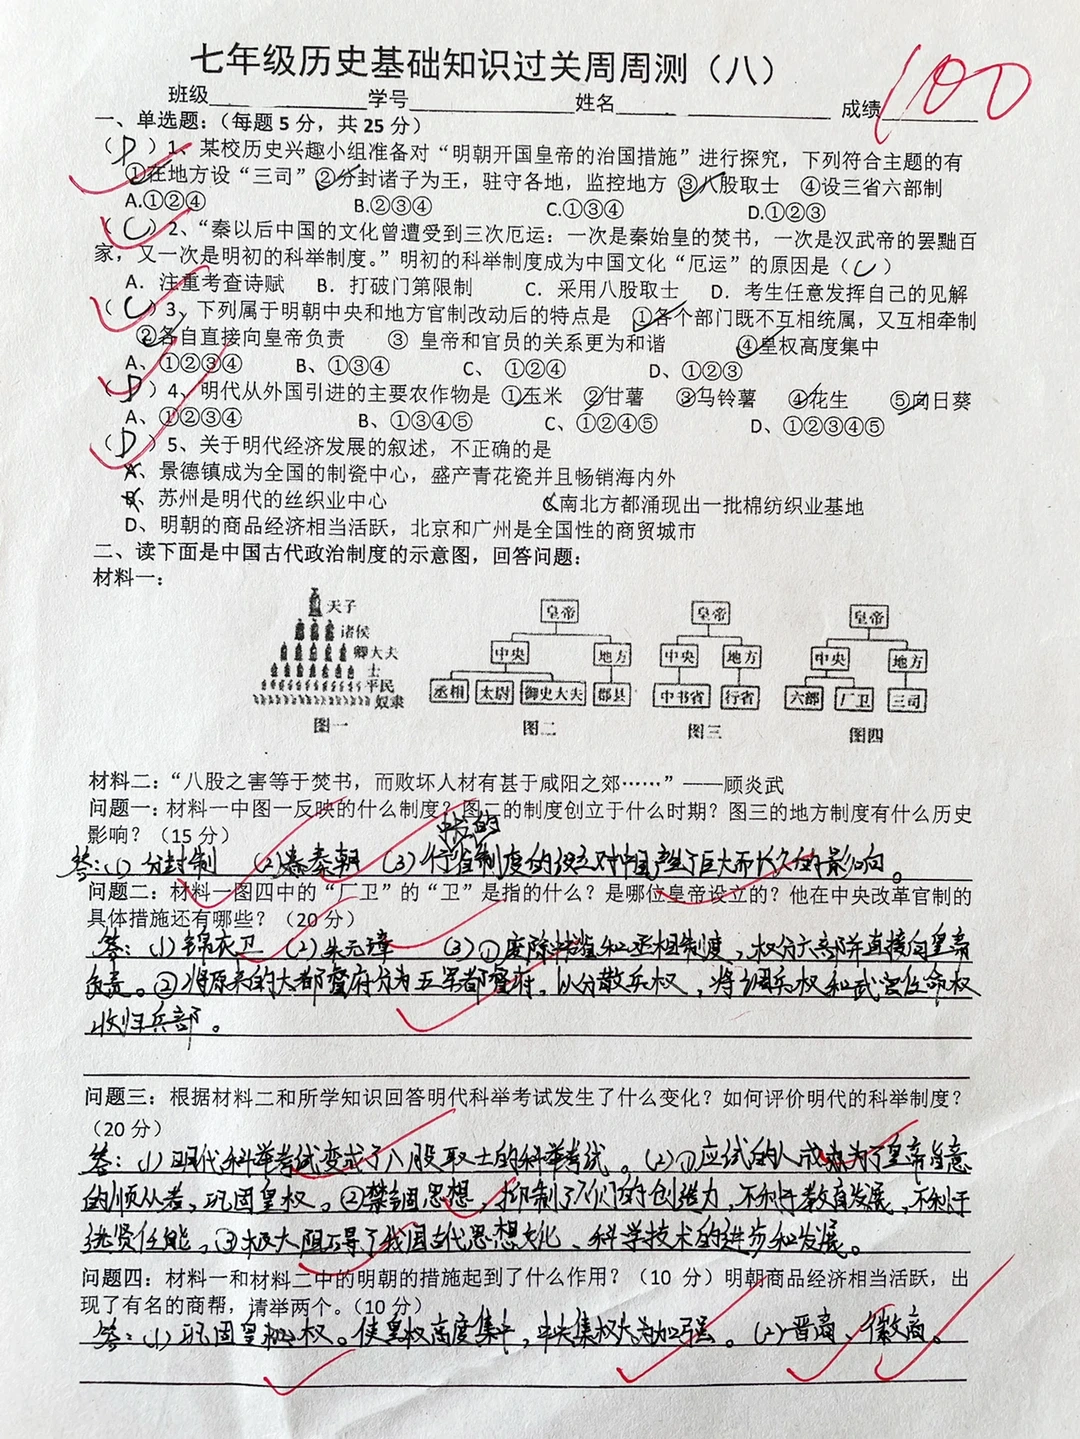 七年级历史基础知识过关周周测（八）
班级 学号 姓名 成绩 100
一、单选题：（每题5分，共25分）
（D）1、某校历史兴趣小组准备对“明朝开国皇帝的治国措施”进行探究，下列符合主题的有
①在地方设“三司” ②分封诸子为王，驻守各地，监控地方 ③八股取士 ④设三省六部制
A.①②④ B.②③④ C.①③④ D.①②③
（C）2、“秦以后中国的文化曾遭受到三次厄运：一次是秦始皇的焚书，一次是汉武帝的罢黜百
家，又一次是明初的科举制度。”明初的科举制度成为中国文化“厄运”的原因是（C）
A．注重考查诗赋 B．打破门第限制 C．采用八股取士 D．考生任意发挥自己的见解
（C）3、下列属于明朝中央和地方官制改动后的特点是 ①各个部门既不互相统属，又互相牵制
②各自直接向皇帝负责 ③ 皇帝和官员的关系更为和谐 ④皇权高度集中
A、①②③④ B、①③④ C、①②④ D、①②③
（D）4、明代从外国引进的主要农作物是 ①玉米 ②甘薯 ③马铃薯 ④花生 ⑤向日葵
A、①②③④ B、①③④⑤ C、①②④⑤ D、①②③④⑤
（D）5、关于明代经济发展的叙述，不正确的是
A、景德镇成为全国的制瓷中心，盛产青花瓷并且畅销海内外
B、苏州是明代的丝织业中心 C、南北方都涌现出一批棉纺织业基地
D、明朝的商品经济相当活跃，北京和广州是全国性的商贸城市
二、读下面是中国古代政治制度的示意图，回答问题：
材料一：
天子
诸侯
卿大夫
士
平民
奴隶
图一
皇帝
中央 地方
丞相 太尉 御史大夫 郡县
图二
皇帝
中央 地方
中书省 行省
图三
皇帝
中央 地方
六部 厂卫 三司
图四
材料二：“八股之害等于焚书，而败坏人材有甚于咸阳之郊……” ——顾炎武
问题一：材料一中图一反映的什么制度？图二的制度创立于什么时期？图三的地方制度有什么历史
影响？（15分）
答：(1) 分封制 (2) 秦朝 (3) 行省制度的设立对中国产生了巨大而长久的影响。
问题二：材料一图四中的“厂卫”的“卫”是指的什么？是哪位皇帝设立的？他在中央改革官制的
具体措施还有哪些？（20分）
答：(1) 锦衣卫 (2) 朱元璋 (3) ①废除中书省和丞相制度，权分六部并直接向皇帝
负责。②将原来的大都督府分为五军都督府，以分散兵权，将调兵权和武官任命权
收归兵部。
问题三：根据材料二和所学知识回答明代科举考试发生了什么变化？如何评价明代的科举制度？
（20分）
答：(1) 明代科举考试变成了八股取士的科举考试。(2) ①应试的人成为了皇帝旨意
的顺从者，巩固皇权。②禁锢思想，抑制了人们的创造力，不利于教育发展，不利于
选贤任能。③极大阻碍了我国古代思想文化、科学技术的进步和发展。
问题四：材料一和材料二中的明朝的措施起到了什么作用？（10分）明朝商品经济相当活跃，出
现了有名的商帮，请举两个。（10分）
答：(1) 巩固皇权。使皇权高度集中，中央集权大为加强。(2) 晋商、徽商。